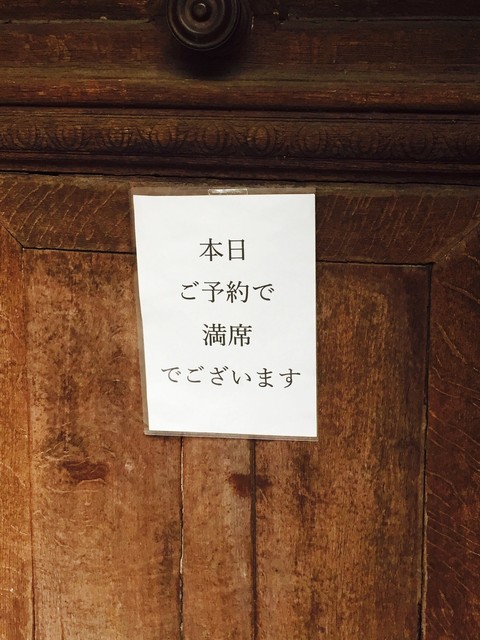 本日
ご予約で
満席
でございます